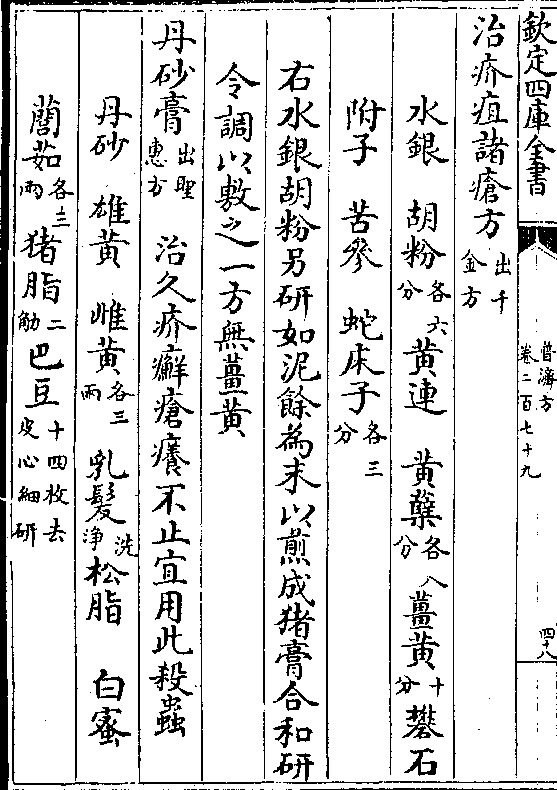 欽定四庫全書
普濟方
卷二百七十九
四十八
治疥疽諸瘡方出千金方
水銀 胡粉各六分黄連 黄蘗各八分薑黄十分礬石
附子 苦參 蛇床子各三分
右水銀胡粉另研如泥餘為末以煎成猪膏合和研
令調以敷之一方無薑黄
丹砂膏出聖惠方 治久疥癬瘡癢不止宜用此殺蟲
丹砂 雄黄 雌黄各三兩乳髮洗浄松脂 白蜜
䕡茹各三兩猪脂二觔巴豆十四枚去皮心細研